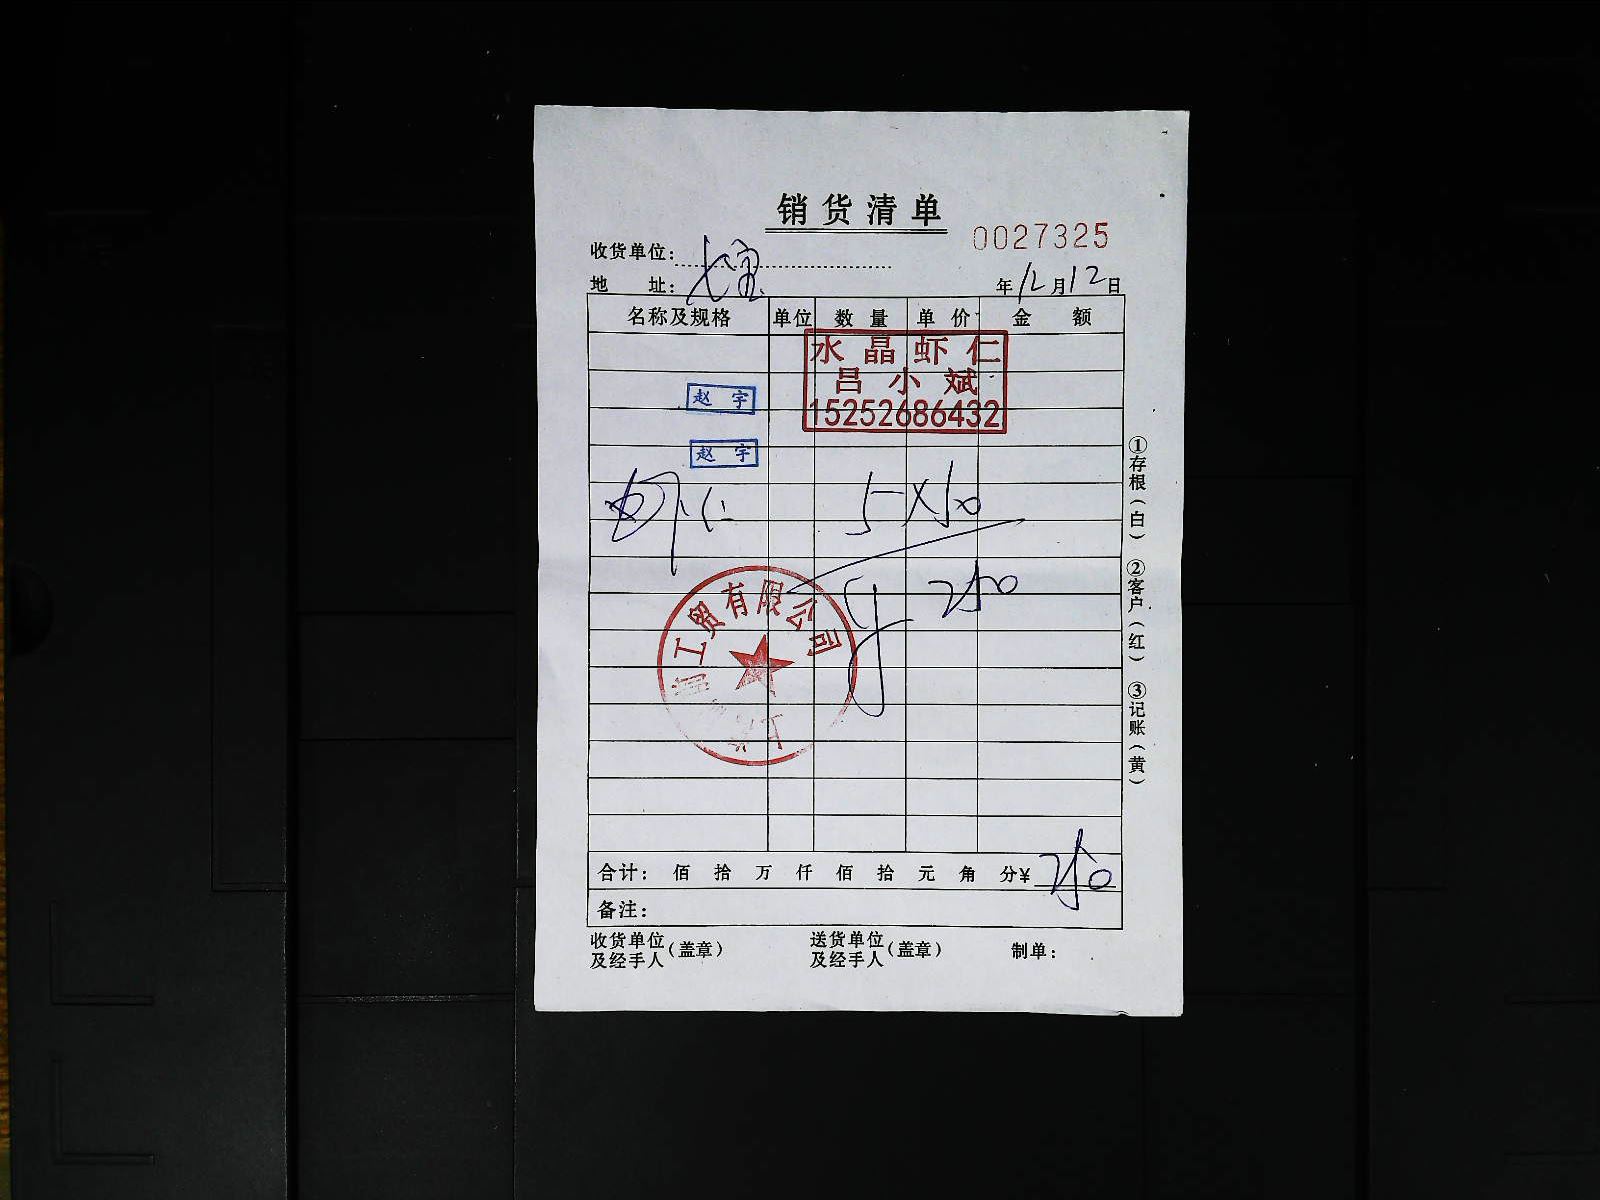 销货清单
0027325
收货单位: 七宝
地 址:
年12月12日
名称及规格 单位 数量 单价 金额
水晶虾仁
吕小斌
15252686432
赵宇
赵宇
虾仁 5×50
250
工贸有限公司
合计: 佰 拾 万 仟 佰 拾 元 角 分¥ 250
备注:
收货单位及经手人(盖章) 送货单位及经手人(盖章) 制单:
①存根(白) ②客户(红) ③记账(黄)